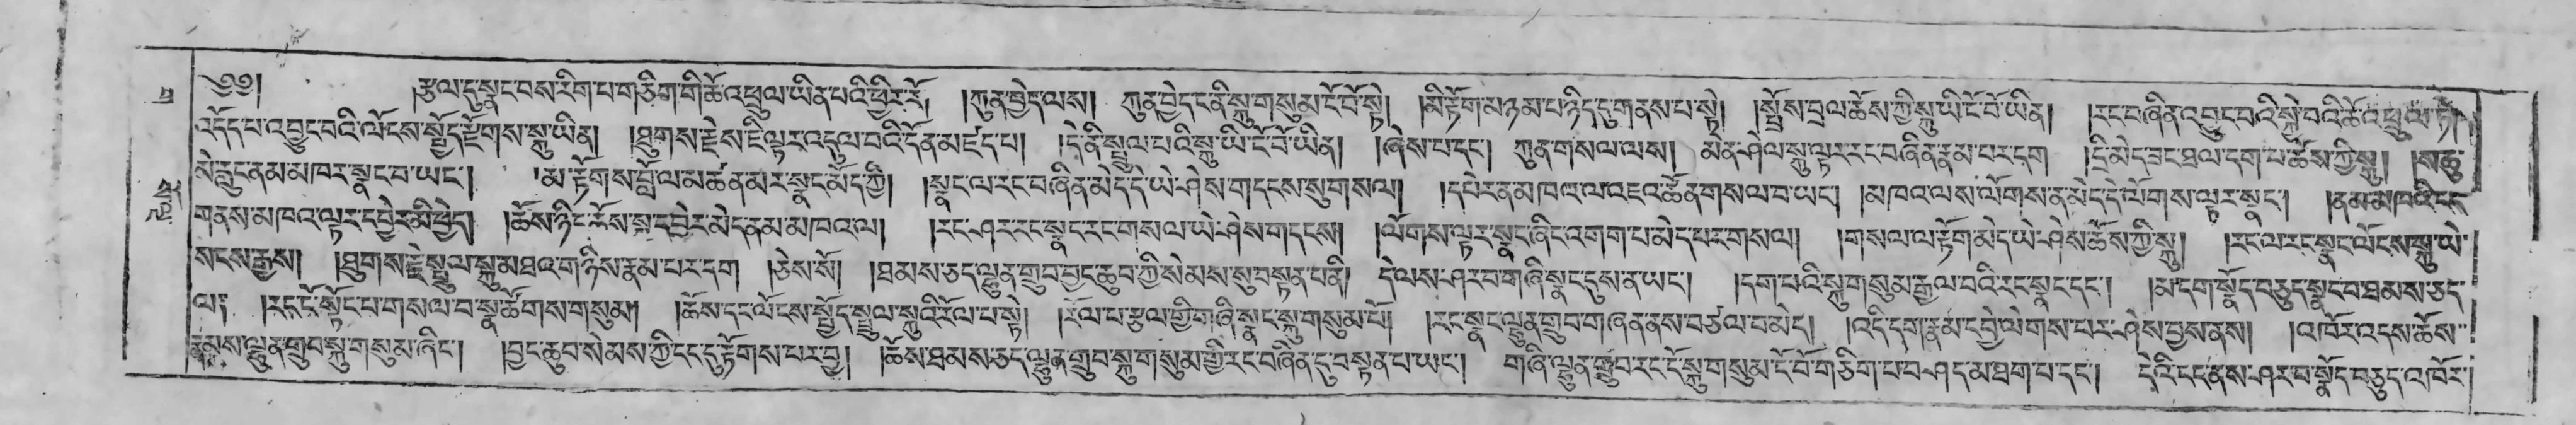 ༄༅། །རྩལ་དུ་སྣང་བས་རིག་པ་གཅིག་གི་ཆོ་འཕྲུལ་ཡིན་པའི་ཕྱིར་རོ། །ཀུན་བྱེད་ལས། ཀུན་བྱེད་ང་ནི་སྐུ་གསུམ་ངོ་བོ་སྟེ། །མི་རྟོག་མཉམ་པ་ཉིད་དུ་གནས་པ་སྟེ། །སྤྲོས་བྲལ་ཆོས་ཀྱི་སྐུ་ཡི་ངོ་བོ་ཡིན། །རང་བཞིན་འབྱུང་བའི་སྐྱེ་བའི་ཆོ་འཕྲུལ་ཏེ།
འདོད་པ་འབྱུང་བའི་ལོངས་སྤྱོད་རྫོགས་སྐུ་ཡིན། །ཐུགས་རྗེས་ཇི་ལྟར་འདུལ་བའི་དོན་མཛད་པ། །དེ་ནི་སྤྲུལ་པའི་སྐུ་ཡི་ངོ་བོ་ཡིན། །ཞེས་པ་དང་། ཀུན་གསལ་ལས། མན་ཤེལ་སྐུ་ལྟར་རང་བཞིན་རྣམ་པར་དག །དྲི་མེད་ཟང་ཐལ་དག་པ་ཆོས་ཀྱི་སྐུ།
མ་རྟོགས་བློ་ལ་མཚན་མར་སྣང་མོད་ཀྱི། །སྣང་ལ་རང་བཞིན་མེད་དེ་ཡེ་ཤེས་གདངས་སུ་གསལ། །དཔེར་ན་མཁའ་ལ་འཇའ་ཚོན་གསལ་བ་ཡང་། །མཁའ་ལས་ལོགས་ན་མེད་དེ་ལོགས་ལྟར་སྣང་།
གནས་མཁའ་ལྟར་དབྱེར་མི་ཕྱེད། །ཆོས་ཉིད་ངོས་སུ་དབྱེར་མེད་ནམ་མཁའ་ལ། །རང་ཤར་རང་སྣང་རང་གསལ་ཡེ་ཤེས་གདངས། །ལོགས་ལྟར་སྣང་ཞིང་འགག་པ་མེད་པར་གསལ། །གསལ་ལ་རྟོག་མེད་ཡེ་ཤེས་ཆོས་ཀྱི་སྐུ། །རང་ལ་རང་སྣང་ལོངས་སྐུ་ཡེ་
སངས་རྒྱས། །ཐུགས་རྗེ་སྤྲུལ་སྐུ་མཐའ་གཉིས་རྣམ་པར་དག །ཅེས་སོ། །ཐམས་ཅད་ལྷུན་གྲུབ་བྱང་ཆུབ་ཀྱི་སེམས་སུ་བསྟན་པ་ནི། དེ་ལས་ཤར་བ་གཞི་སྣང་དུས་ན་ཡང་། །དག་པའི་སྐུ་གསུམ་རྒྱལ་བའི་རང་སྣང་དང་། །མ་དག་སྣོད་བཅུད་སྣང་བ་ཐམས་ཅད་
ལ། །རང་ངོ་སྟོང་པ་གསལ་བ་སྣ་ཚོགས་གསུམ། །ཆོས་དང་ལོངས་སྤྱོད་སྤྲུལ་སྐུའི་རོལ་པ་སྟེ། །རོལ་པ་རྩལ་གྱི་གཞི་སྣང་སྐུ་གསུམ་པོ། །རང་སྣང་ལྷུན་གྲུབ་གཞན་ནས་བཙལ་བ་མེད། །འདི་དག་རྣམ་དབྱེ་ལེགས་པར་ཤེས་བྱས་ནས། །འཁོར་འདས་ཆོས་
རྣམས་ལྷུན་གྲུབ་སྐུ་གསུམ་ཞིང་། །བྱང་ཆུབ་སེམས་ཀྱི་ངང་དུ་རྟོགས་པར་བྱ། །ཆོས་ཐམས་ཅད་ལྷུན་གྲུབ་སྐུ་གསུམ་གྱི་རང་བཞིན་དུ་བསྟན་པ་ཡང་། གཞི་ལྷུན་གྲུབ་རང་ངོ་སྐུ་གསུམ་ངོ་བོ་གཅིག་པ་བཤད་མ་ཐག་པ་དང་། དེའི་ངང་ནས་ཤར་བ་སྣོད་བཅུད་འཁོར་